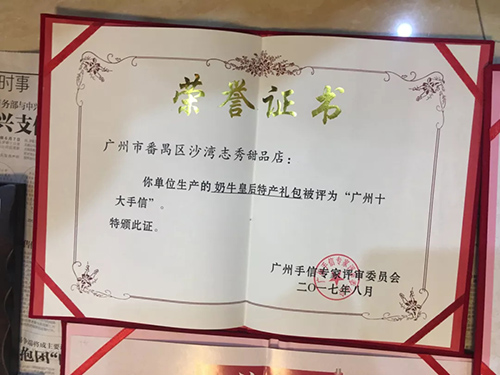 荣誉证书
广州市番禺区沙湾志秀甜品店：
你单位生产的 奶牛皇后特产礼包被评为“广州十
大手信”。
特颁此证。
广州手信专家评审委员会
二〇一七年八月
时事